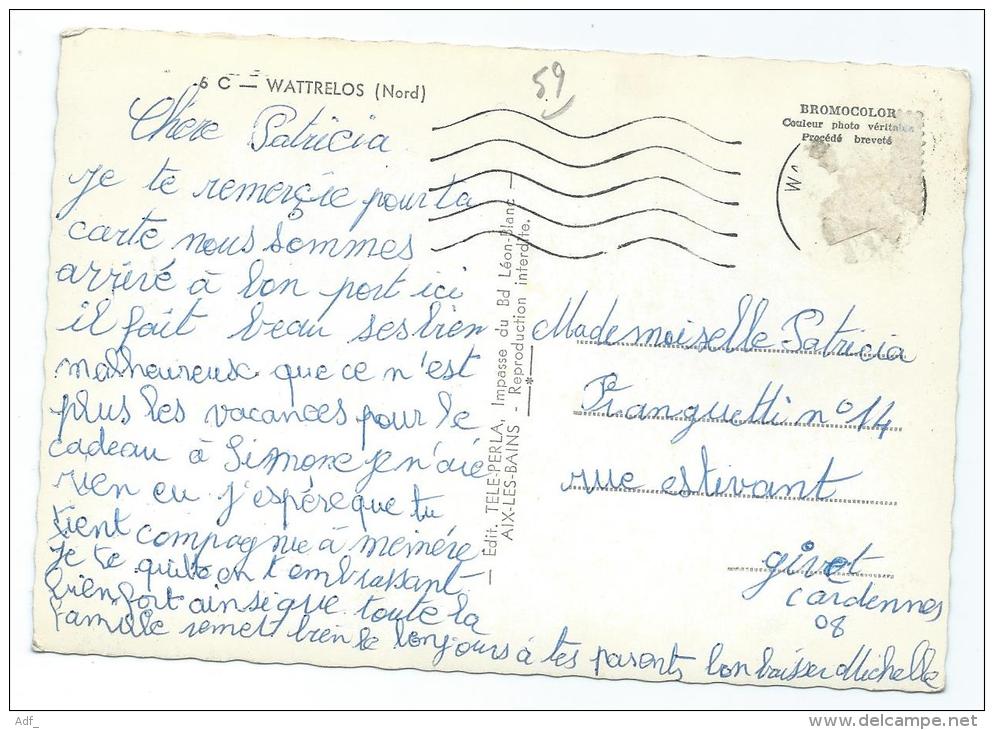 6 C — WATTRELOS (Nord)
59
BROMOCOLOR
Couleur photo véritable
Procédé breveté
W
Chère Patricia
je te remerçie pour ta
carte nous sommes
arrivé à bon port ici
il fait beau ses bien
malheureux que ce n'est
plus les vacances pour le
cadeau à Simone je n'aie
rien eu j'espère que tu
tient compagnie à mémère
je te quitte en t'embrassant
bien fort ainsi que toute la
famille remet bien le bonjours à tes parents bon baiser Michelle
— Edit. TELE-PERLA, Impasse du Bd Léon-Blanc —
AIX-LES-BAINS - Reproduction interdite.
*
Mademoiselle Patricia
Pranguetti n° 14
rue estivant
givet
(ardennes
08
Adf_
www.delcampe.net